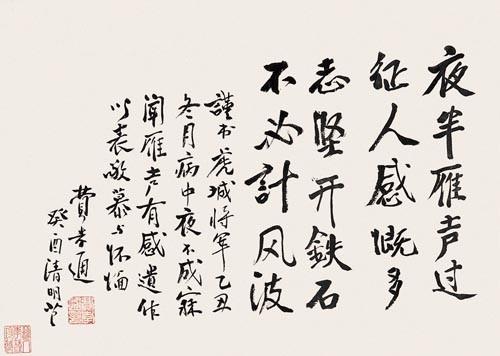 夜半雁声过
征人感慨多
志坚开鉄石
不必計风波
謹书虎城将军乙丑
冬月病中夜不成寐
聞雁声有感遗作
以表敬慕与怀
費孝通
癸酉清明节